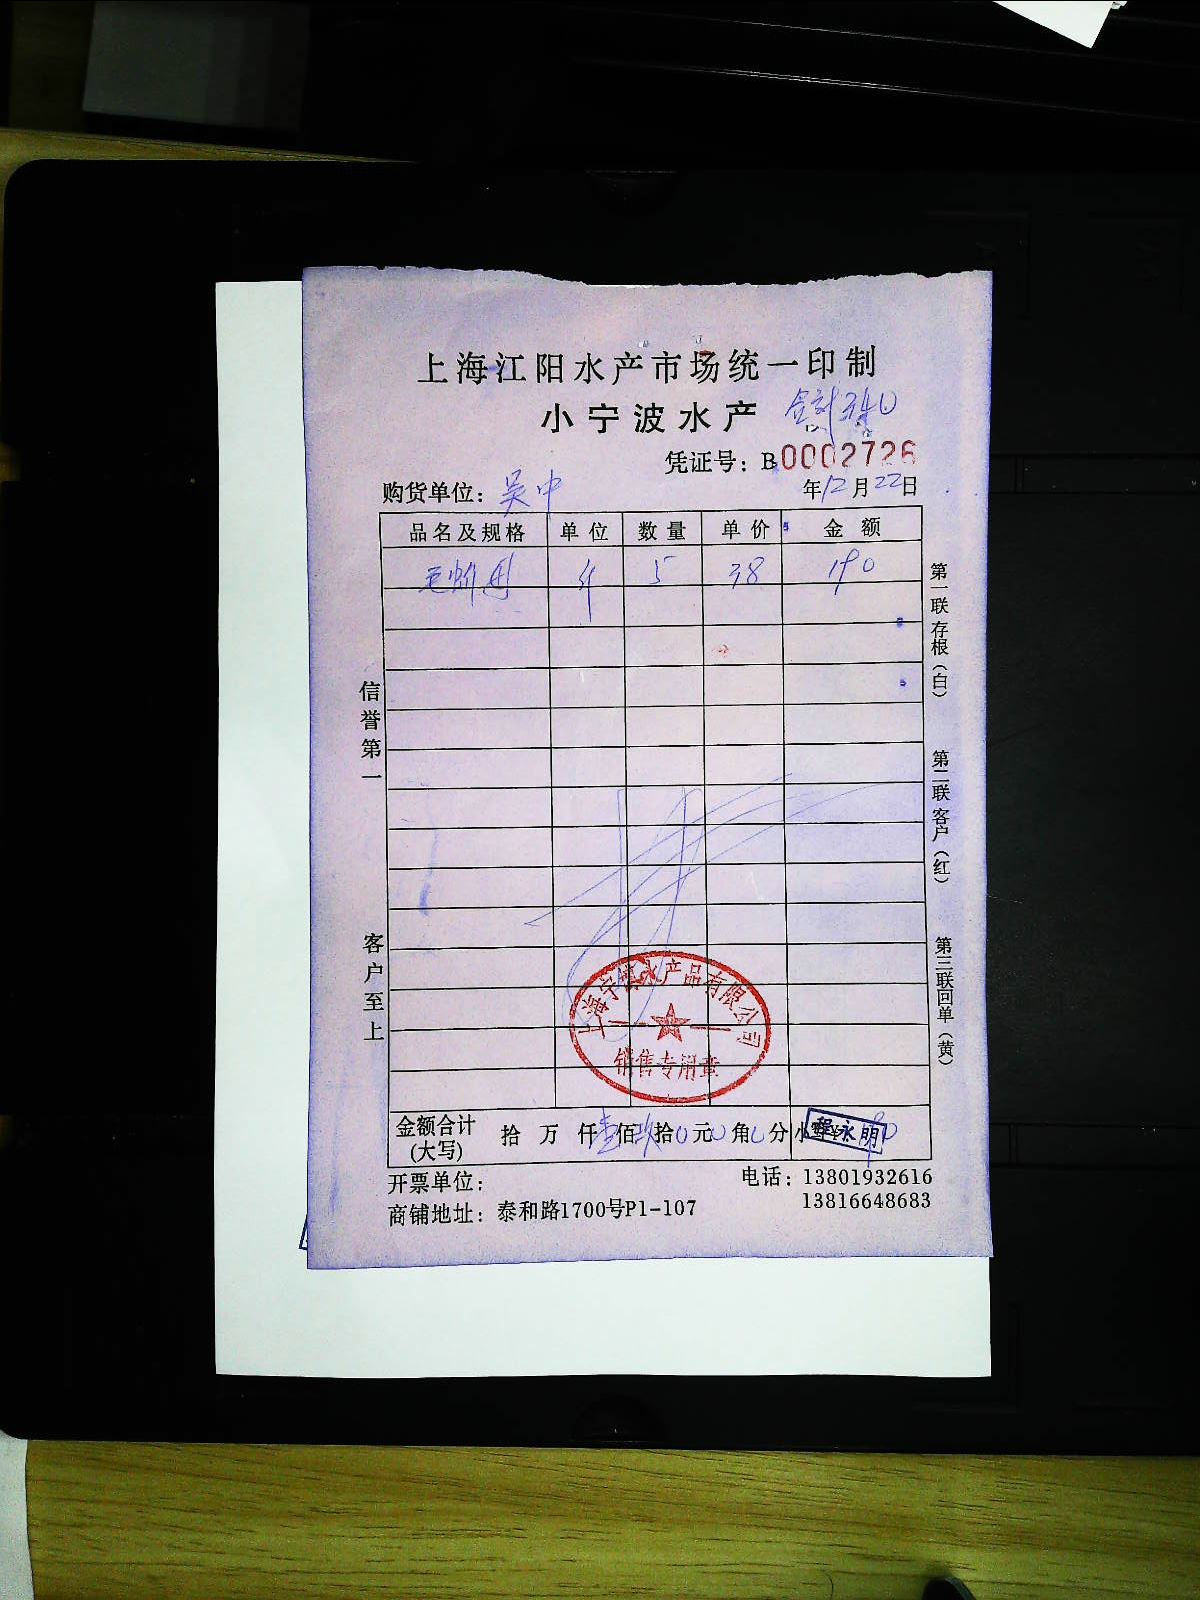 上海江阳水产市场统一印制
小宁波水产
合计340
凭证号：B0002726
购货单位：吴中
年12月22日
品名及规格 单位 数量 单价 金额
毛蚶 斤 5 38 190
信誉第一
客户至上
第一联存根（白）
第二联客户（红）
第三联回单（黄）
上海宁波水产品有限公司
销售专用章
金额合计（大写） 拾 万 仟壹佰玖拾0元0角0分小写¥190
程永明
开票单位：
电话：13801932616
13816648683
商铺地址：泰和路1700号P1-107